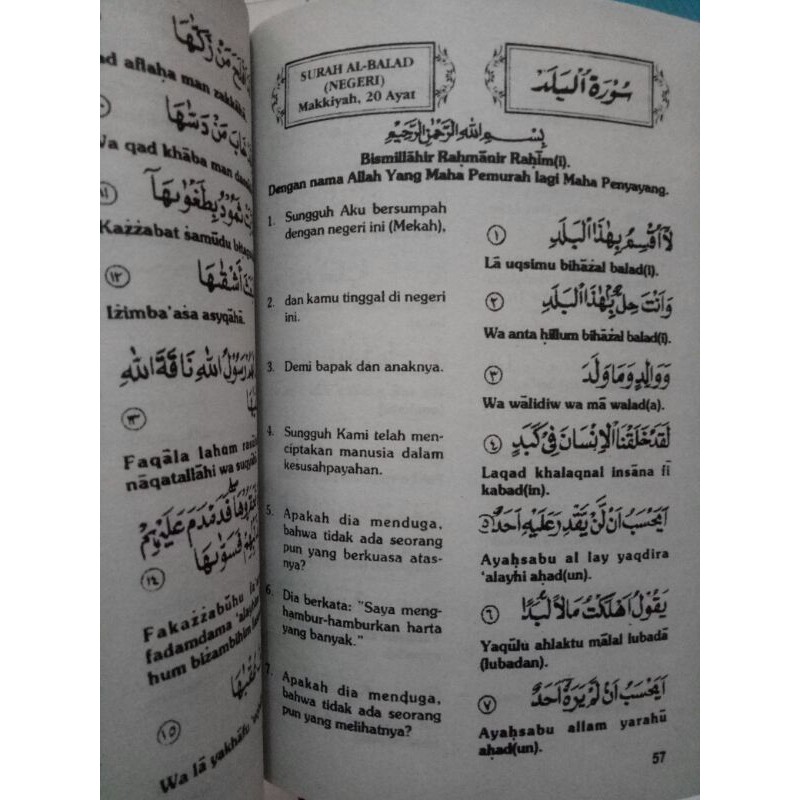 ad aflaḥa man zakkāhā
qad khāba man
Każżabat ṡamūdu
Iżimba'aṡa asyqāhā.
Faqāla lahum
nāqatallāhi wa suqyāhā
Fakażżabūhu
fadamdama 'alayhim
hum biżambihim
Wa lā yakhāfu
SURAH AL-BALAD
(NEGERI)
Makkiyah, 20 Ayat
سُورَةُ الْبَلَدِ
بِسْمِ اللهِ الرَّحْمٰنِ الرَّحِيْمِ
Bismillāhir Raḥmānir Raḥīm(i).
Dengan nama Allah Yang Maha Pemurah lagi Maha Penyayang.
1. Sungguh Aku bersumpah
dengan negeri ini (Mekah),
لَآ اُقْسِمُ بِهٰذَا الْبَلَدِ ١
Lā uqsimu bihāżal balad(i).
2. dan kamu tinggal di negeri
ini.
وَاَنْتَ حِلٌّ بِهٰذَا الْبَلَدِ ٢
Wa anta ḥillum bihāżal balad(i).
3. Demi bapak dan anaknya.
وَوَالِدٍ وَّمَا وَلَدَ ٣
Wa wālidiw wa mā walad(a).
4. Sungguh Kami telah men-
ciptakan manusia dalam
kesusahpayahan.
لَقَدْ خَلَقْنَا الْاِنْسَانَ فِيْ كَبَدٍ ٤
Laqad khalaqnal insāna fī
kabad(in).
5. Apakah dia menduga,
bahwa tidak ada seorang
pun yang berkuasa atas-
nya?
اَيَحْسَبُ اَنْ لَّنْ يَّقْدِرَ عَلَيْهِ اَحَدٌ ٥
Ayaḥsabu al lay yaqdira
'alayhi aḥad(un).
6. Dia berkata: "Saya meng-
hambur-hamburkan harta
yang banyak."
يَقُوْلُ اَهْلَكْتُ مَالًا لُّبَدًا ٦
Yaqūlu ahlaktu mālal lubadā
(lubadan).
7. Apakah dia menduga,
bahwa tidak ada seorang
pun yang melihatnya?
اَيَحْسَبُ اَنْ لَّمْ يَرَهٗٓ اَحَدٌ ٧
Ayaḥsabu allam yarahū
aḥad(un).
57